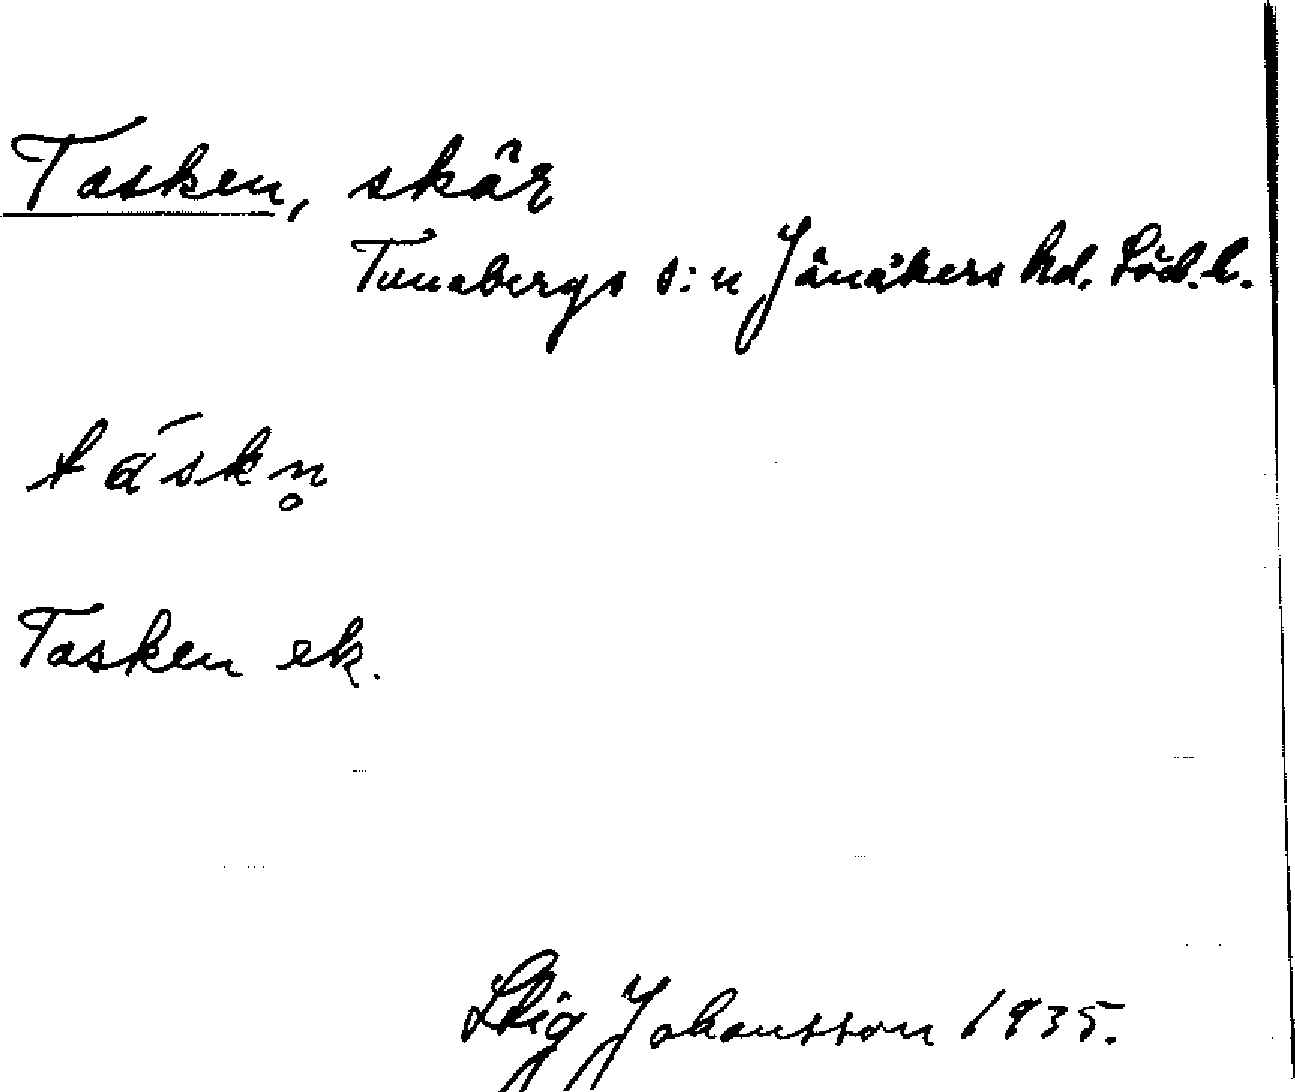 Tasken, skär
Tunabergs s:n Jönåkers hd. Söd.l.
táskn̥
Tasken ek.
Stig Johansson 1935.